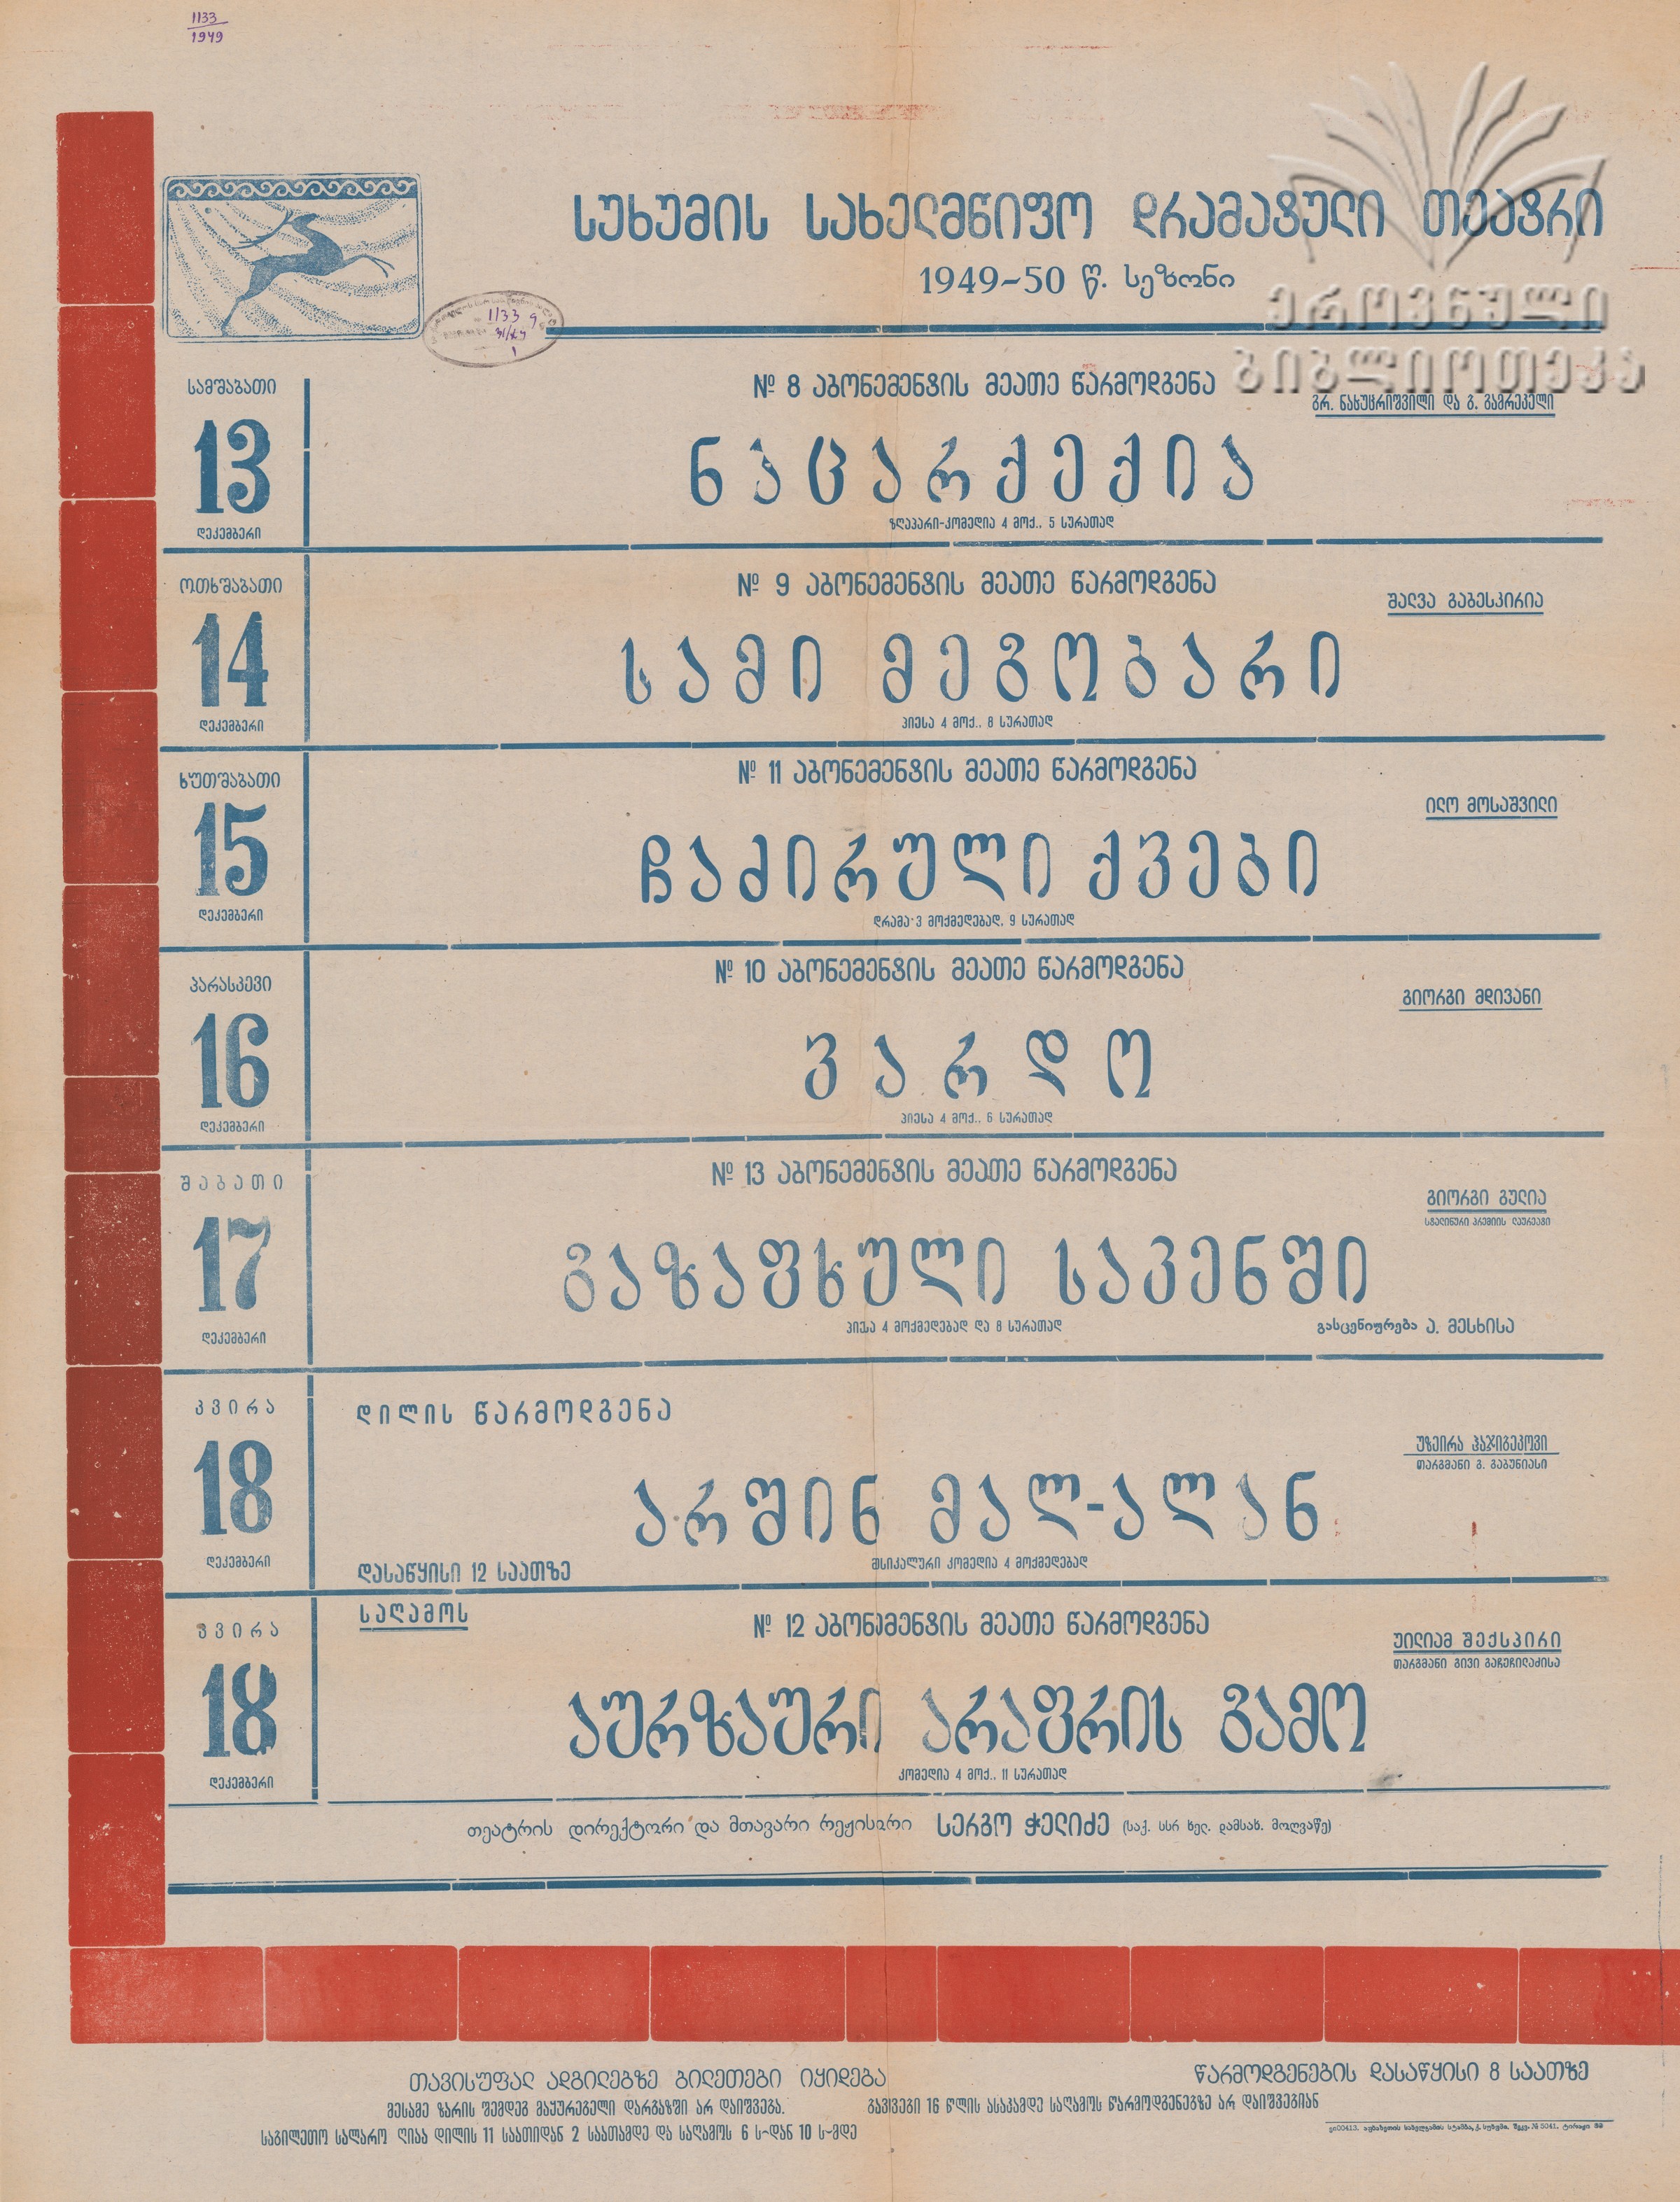 1133
1949
სუხუმის სახელმწიფო დრამატული თეატრი
1949-50 წ. სეზონი
ეროვნული
ბიბლიოთეკა
1133
სამშაბათი
13
დეკემბერი
№ 8 აბონემენტის მეათე წარმოდგენა
გრ. ნახუცრიშვილი და ბ. გამრეკელი
ნაცარქექია
ზღაპარი-კომედია 4 მოქ., 5 სურათად
ოთხშაბათი
14
დეკემბერი
№ 9 აბონემენტის მეათე წარმოდგენა
შალვა გაბესკირია
სამი მეგობარი
პიესა 4 მოქ., 8 სურათად
ხუთშაბათი
15
დეკემბერი
№ 11 აბონემენტის მეათე წარმოდგენა
ილო მოსაშვილი
ჩაძირული ქვები
დრამა 3 მოქმედებად, 9 სურათად
პარასკევი
16
დეკემბერი
№ 10 აბონემენტის მეათე წარმოდგენა
გიორგი მდივანი
ვარდო
პიესა 4 მოქ., 6 სურათად
შაბათი
17
დეკემბერი
№ 13 აბონემენტის მეათე წარმოდგენა
გიორგი გულია
სტალინური პრემიის ლაურეატი
გაზაფხული საკენში
პიესა 4 მოქმედებად და 8 სურათად
გასცენიურება ა. მესხისა
კვირა
18
დეკემბერი
დილის წარმოდგენა
უზეირა ჰაჯიბეკოვი
თარგმანი გ. გაბუნიასი
არშინ მალ-ალან
მუსიკალური კომედია 4 მოქმედებად
დასაწყისი 12 საათზე
კვირა
18
დეკემბერი
საღამოს
№ 12 აბონამენტის მეათე წარმოდგენა
უილიამ შექსპირი
თარგმანი გივი გაჩეჩილაძისა
აურზაური არაფრის გამო
კომედია 4 მოქ., 11 სურათად
თეატრის დირექტორი და მთავარი რეჟისორი სერგო ჭელიძე (საქ. სსრ ხელ. დამსახ. მოღვაწე)
თავისუფალ ადგილებზე ბილეთები იყიდება
წარმოდგენების დასაწყისი 8 საათზე
მესამე ზარის შემდეგ მაყურებელი დარბაზში არ დაიშვება.
ბავშვები 16 წლის ასაკამდე საღამოს წარმოდგენებზე არ დაიშვებიან
საბილეთო სალარო ღიაა დილის 11 საათიდან 2 საათამდე და საღამოს 6 ს-დან 10 ს-მდე
ეი00413. აფხაზეთის სახელგამის სტამბა, ქ. სუხუმი. შეკვ. № 5041. ტირაჟი